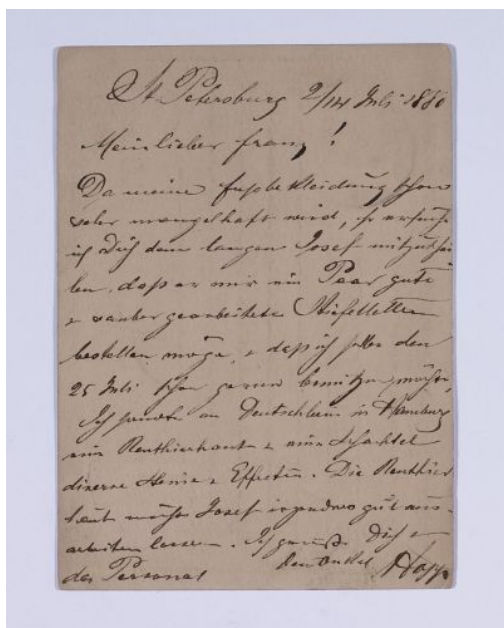 St. Petersburg 2/14 Juli 1880
Mein lieber Franz!
Da meine Fussbekleidung schon
sehr mangelhaft wird, so ersuche
ich Dich dem langen Josef mitzuthei
len, dass er mir ein Paar gute
& sauber gearbeitete Stiefletten
bestellen möge, & dass ich selbe den
25 Juli schon gerne benützen möchte,
Ich sandte an Deutschbein in Hamburg
ein Rennthierhaut & eine Schachtel
diverse Steine & Effecten. Die Rennthier
haut möchte Josef irgendwo gut aus-
arbeiten lassen. Ich grüsse Dich &
das Personal
Dein Onkel Hopp